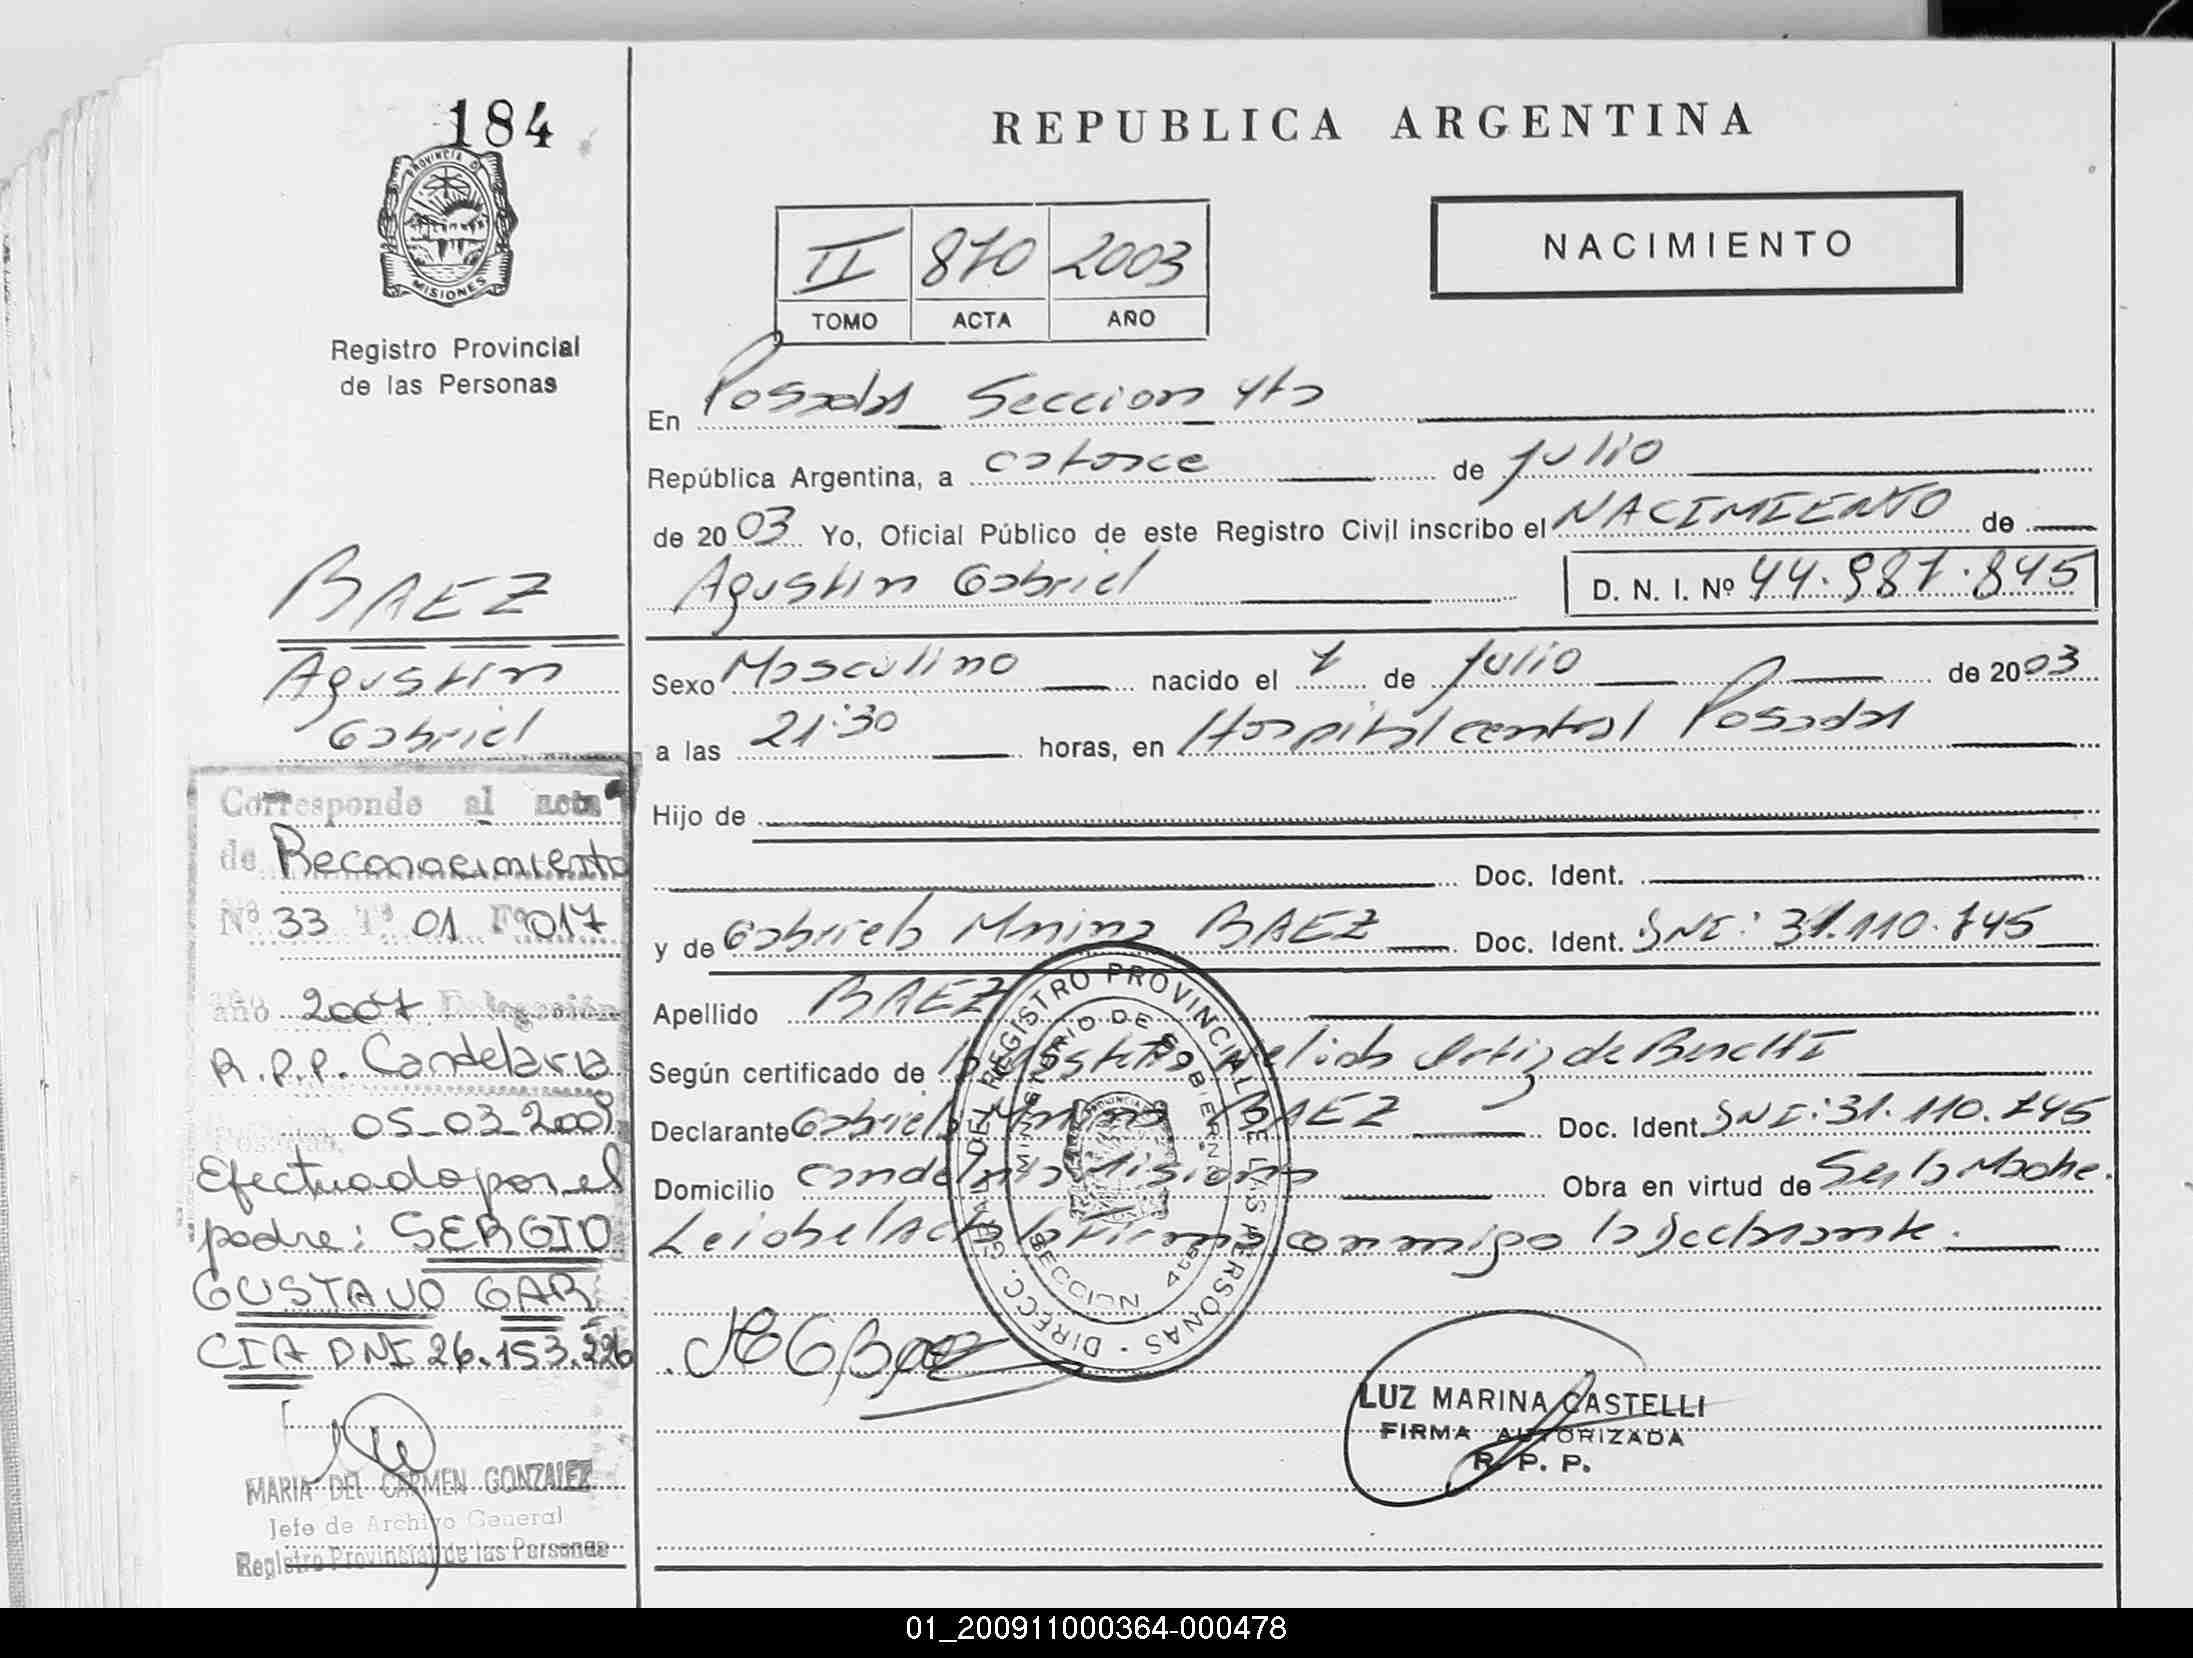 184
PROVINCIA DE
MISIONES
Registro Provincial
de las Personas
REPUBLICA ARGENTINA
II 870 2003
TOMO ACTA AÑO
NACIMIENTO
En Posadas Seccion 4ta
República Argentina, a catorce de julio
de 2003 Yo, Oficial Público de este Registro Civil inscribo el NACIMIENTO de
Agustin Gabriel D. N. I. Nº 44.987.845
Sexo Masculino nacido el 7 de julio de 2003
a las 21:30 horas, en Hospital central Posadas
Hijo de
Doc. Ident.
y de Gabriela Marina BAEZ Doc. Ident. DNI: 31.110.745
Apellido BAEZ
Según certificado de la Obstetra Ortiz de
Declarante Gabriela Marina BAEZ Doc. Ident. DNI: 31.110.745
Domicilio Candelaria Misiones Obra en virtud de Ser la Madre.
Leida el Acta la firma conmigo la Declarante.
DIRECC. GRAL. DEL REGISTRO PROVINCIAL DE LAS PERSONAS
MINISTERIO DE GOBIERNO
SECCION 4ta
Baez
LUZ MARINA CASTELLI
FIRMA AUTORIZADA
R. P. P.
BAEZ
Agustin
Gabriel
Corresponde al acta
de Reconocimiento
Nº 33 Tº 01 Fº 017
año 2007 Delegación
R.P.P. Candelaria
Posadas, 05-03-2009
Efectuado por el
padre: SERGIO
GUSTAVO GAR
CIA DNI 26.153.226
MARIA DEL CARMEN GONZALEZ
Jefe de Archivo General
Registro Provincial de las Personas
01_200911000364-000478